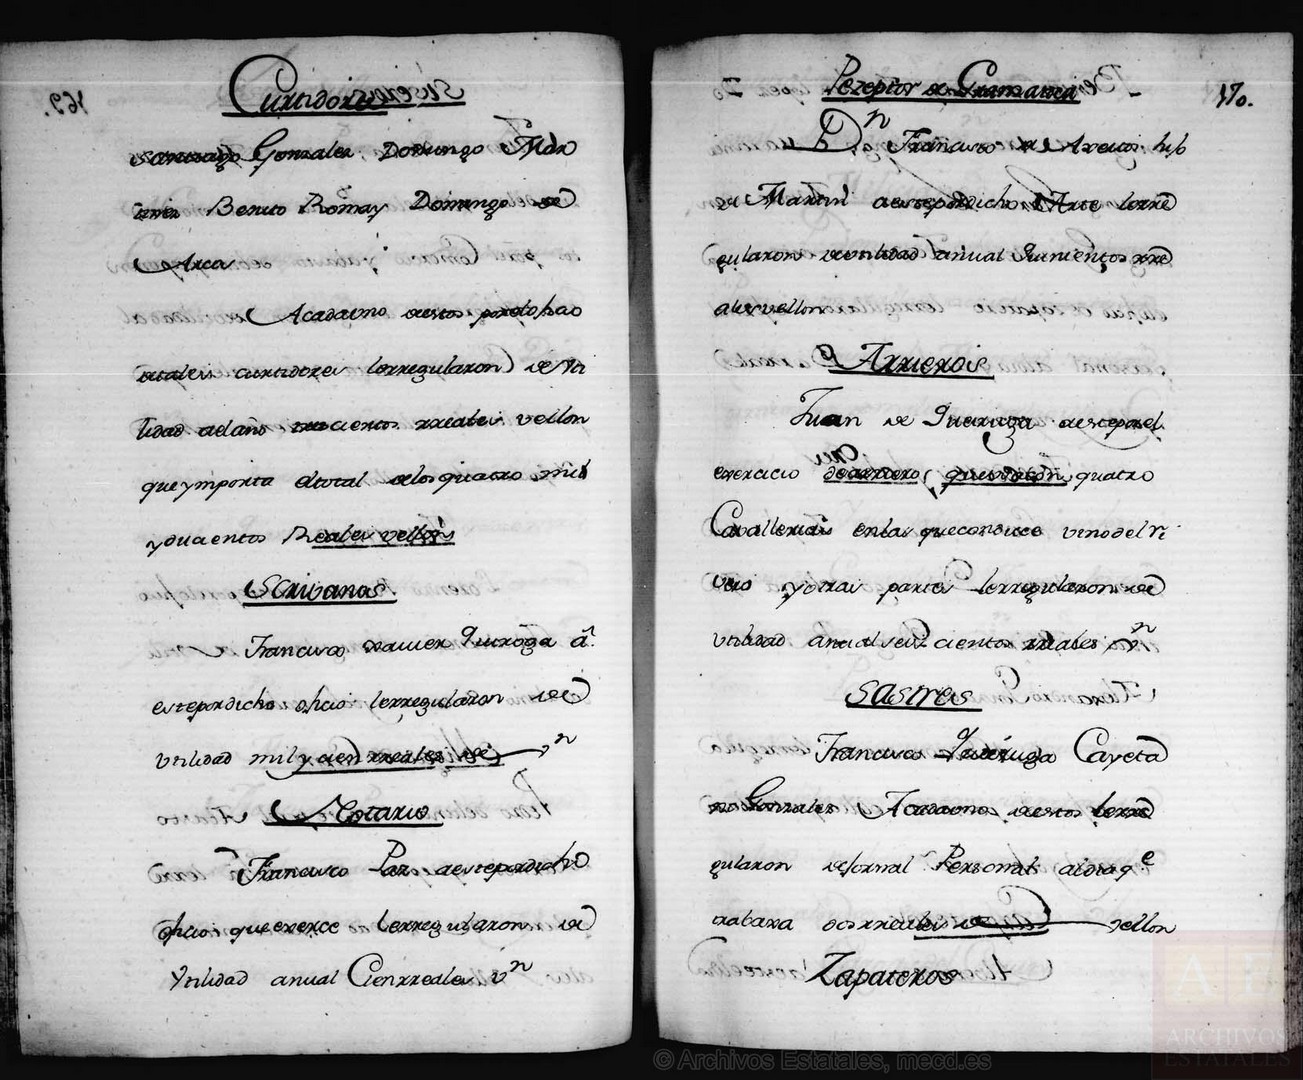 169.
Curtidores
Santiago Gonzalez, Domingo Mar
tinez Benito Romay Domingo de
Arca
Acadauno destos portohao
ofiales curtidores lerregularon de Vti
lidad alaño trescientos rreales vellon
que ymporta eltotal delos quatro mill
y ducientos Reales vellon
Scrivanos
Francisco xauier Quiroga a
este por dicho oficio lerregularon de
Vtilidad mil y cien rreales de Vn
Notario
Francisco Paz aeste por dicho
oficio que exerce lerregularon de
Ytilidad anual Cien rreales Vn
170.
Prezeptor de Gramatica
Dn Francisco de Arxeriz hijo
de Martin aeste por dicho Arte lerre
gularon de vtilidad anual Quinientos rre
ales vellon
Arrieros
Juan de Quiroga aeste por el
exercicio de arriero, que vsa con quatro
Cavallerias en las que conduce vino del ri
vero y otras partes lerregularon de
vtilidad anual seiz cientos rreales Vn
Sastres
Francisco Quiroga Cayeta
no Gonzalez Acadauno destos lerre
gularon de Jornal Personal aldia qe
trabaxa dos rreales de vellon
Zapateros
© Archivos Estatales, mecd.es
AE
ARCHIVOS
ESTATALES